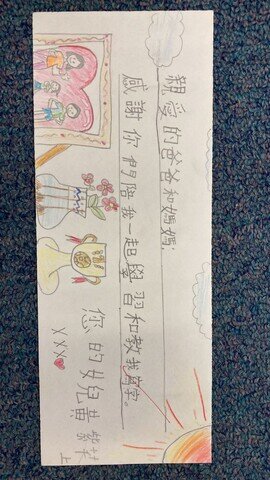 親愛的爸爸和媽媽:
感謝你們陪我一起學習和教我寫字。
您的女兒黃紫 上
XXX